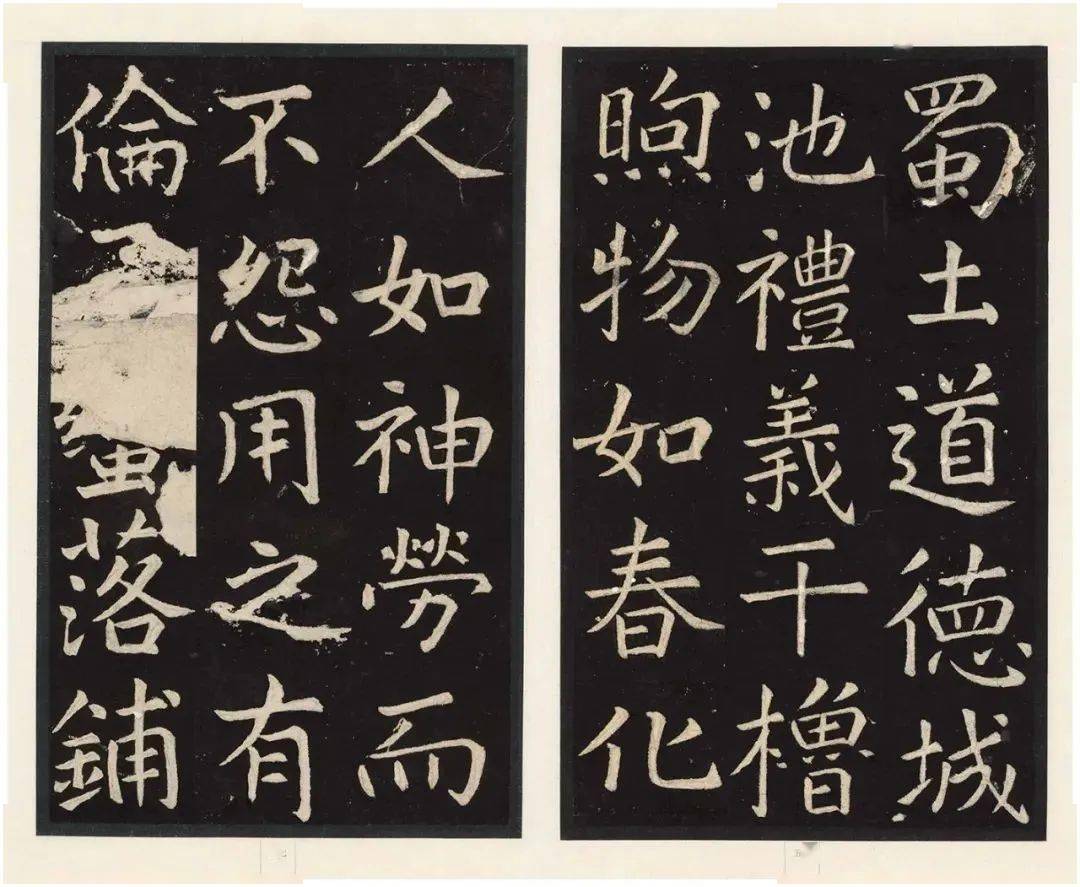 蜀土道德城
池禮義干櫓
煦物如春化
人如神勞而
不怨用之有
倫落鋪